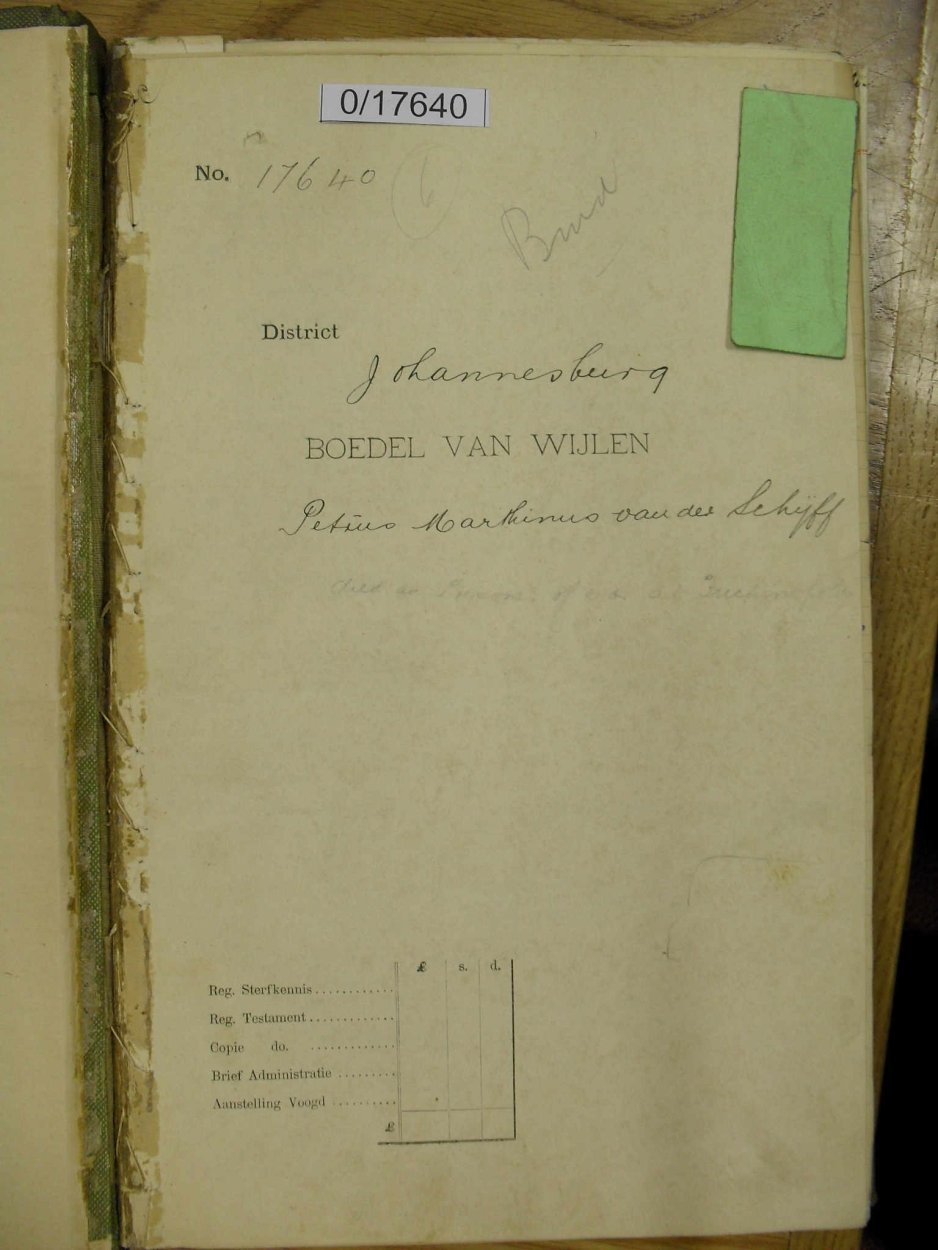 0/17640
No. 17640
District
Johannesburg
BOEDEL VAN WIJLEN
Petrus Marthinus van der Schijff
died as Prisoner of
£ s. d.
Reg. Sterfkennis............
Reg. Testament.............
Copie do. .............
Brief Administratie .........
Aanstelling Voogd ..........
£